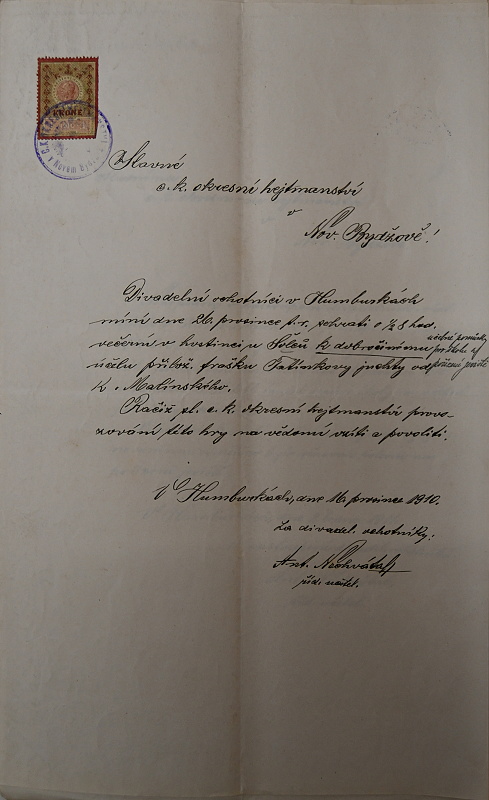 KRONE
v Novém Byd
Slavné
c. k. okresní hejtmanství
v
Nov. Bydžově!
Divadelní ochotníci v Humburkách
míní dne 26. prosince t. r. sehrati o 1/2 8 hod.
večerní v hostinci u Šolců k dobročinnému
účelu přílož. frašku Tatínkovy juchty od
K. Malínského.
učebné pomůcky
pro školu a
Račiž sl. c. k. okresní hejtmanství provo-
zování této hry na vědomí vzíti a povoliti.
V Humburkách, dne 16. prosince 1910.
Za divadel. ochotníky:
Ant. Nechvátal
říd. učitel.